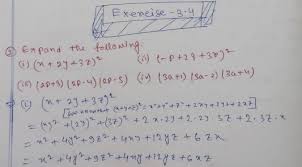 Exercise - 3.4
① Expand the following:
(i) (x + 2y + 3z)² (ii) (-p + 2q + 3r)²
(iii) (2p+3)(2p-4)(2p-5) (iv) (3a+1)(3a-2)(3a+4)
(i) (x + 2y + 3z)²
= (x)² + (2y)² + (3z)² + 2·x·2y + 2·2y·3z + 2·3z·x
= x² + 4y² + 9z² + 4xy + 12yz + 6zx
= x² + 4y² + 9z² + 4xy + 12yz + 6xz